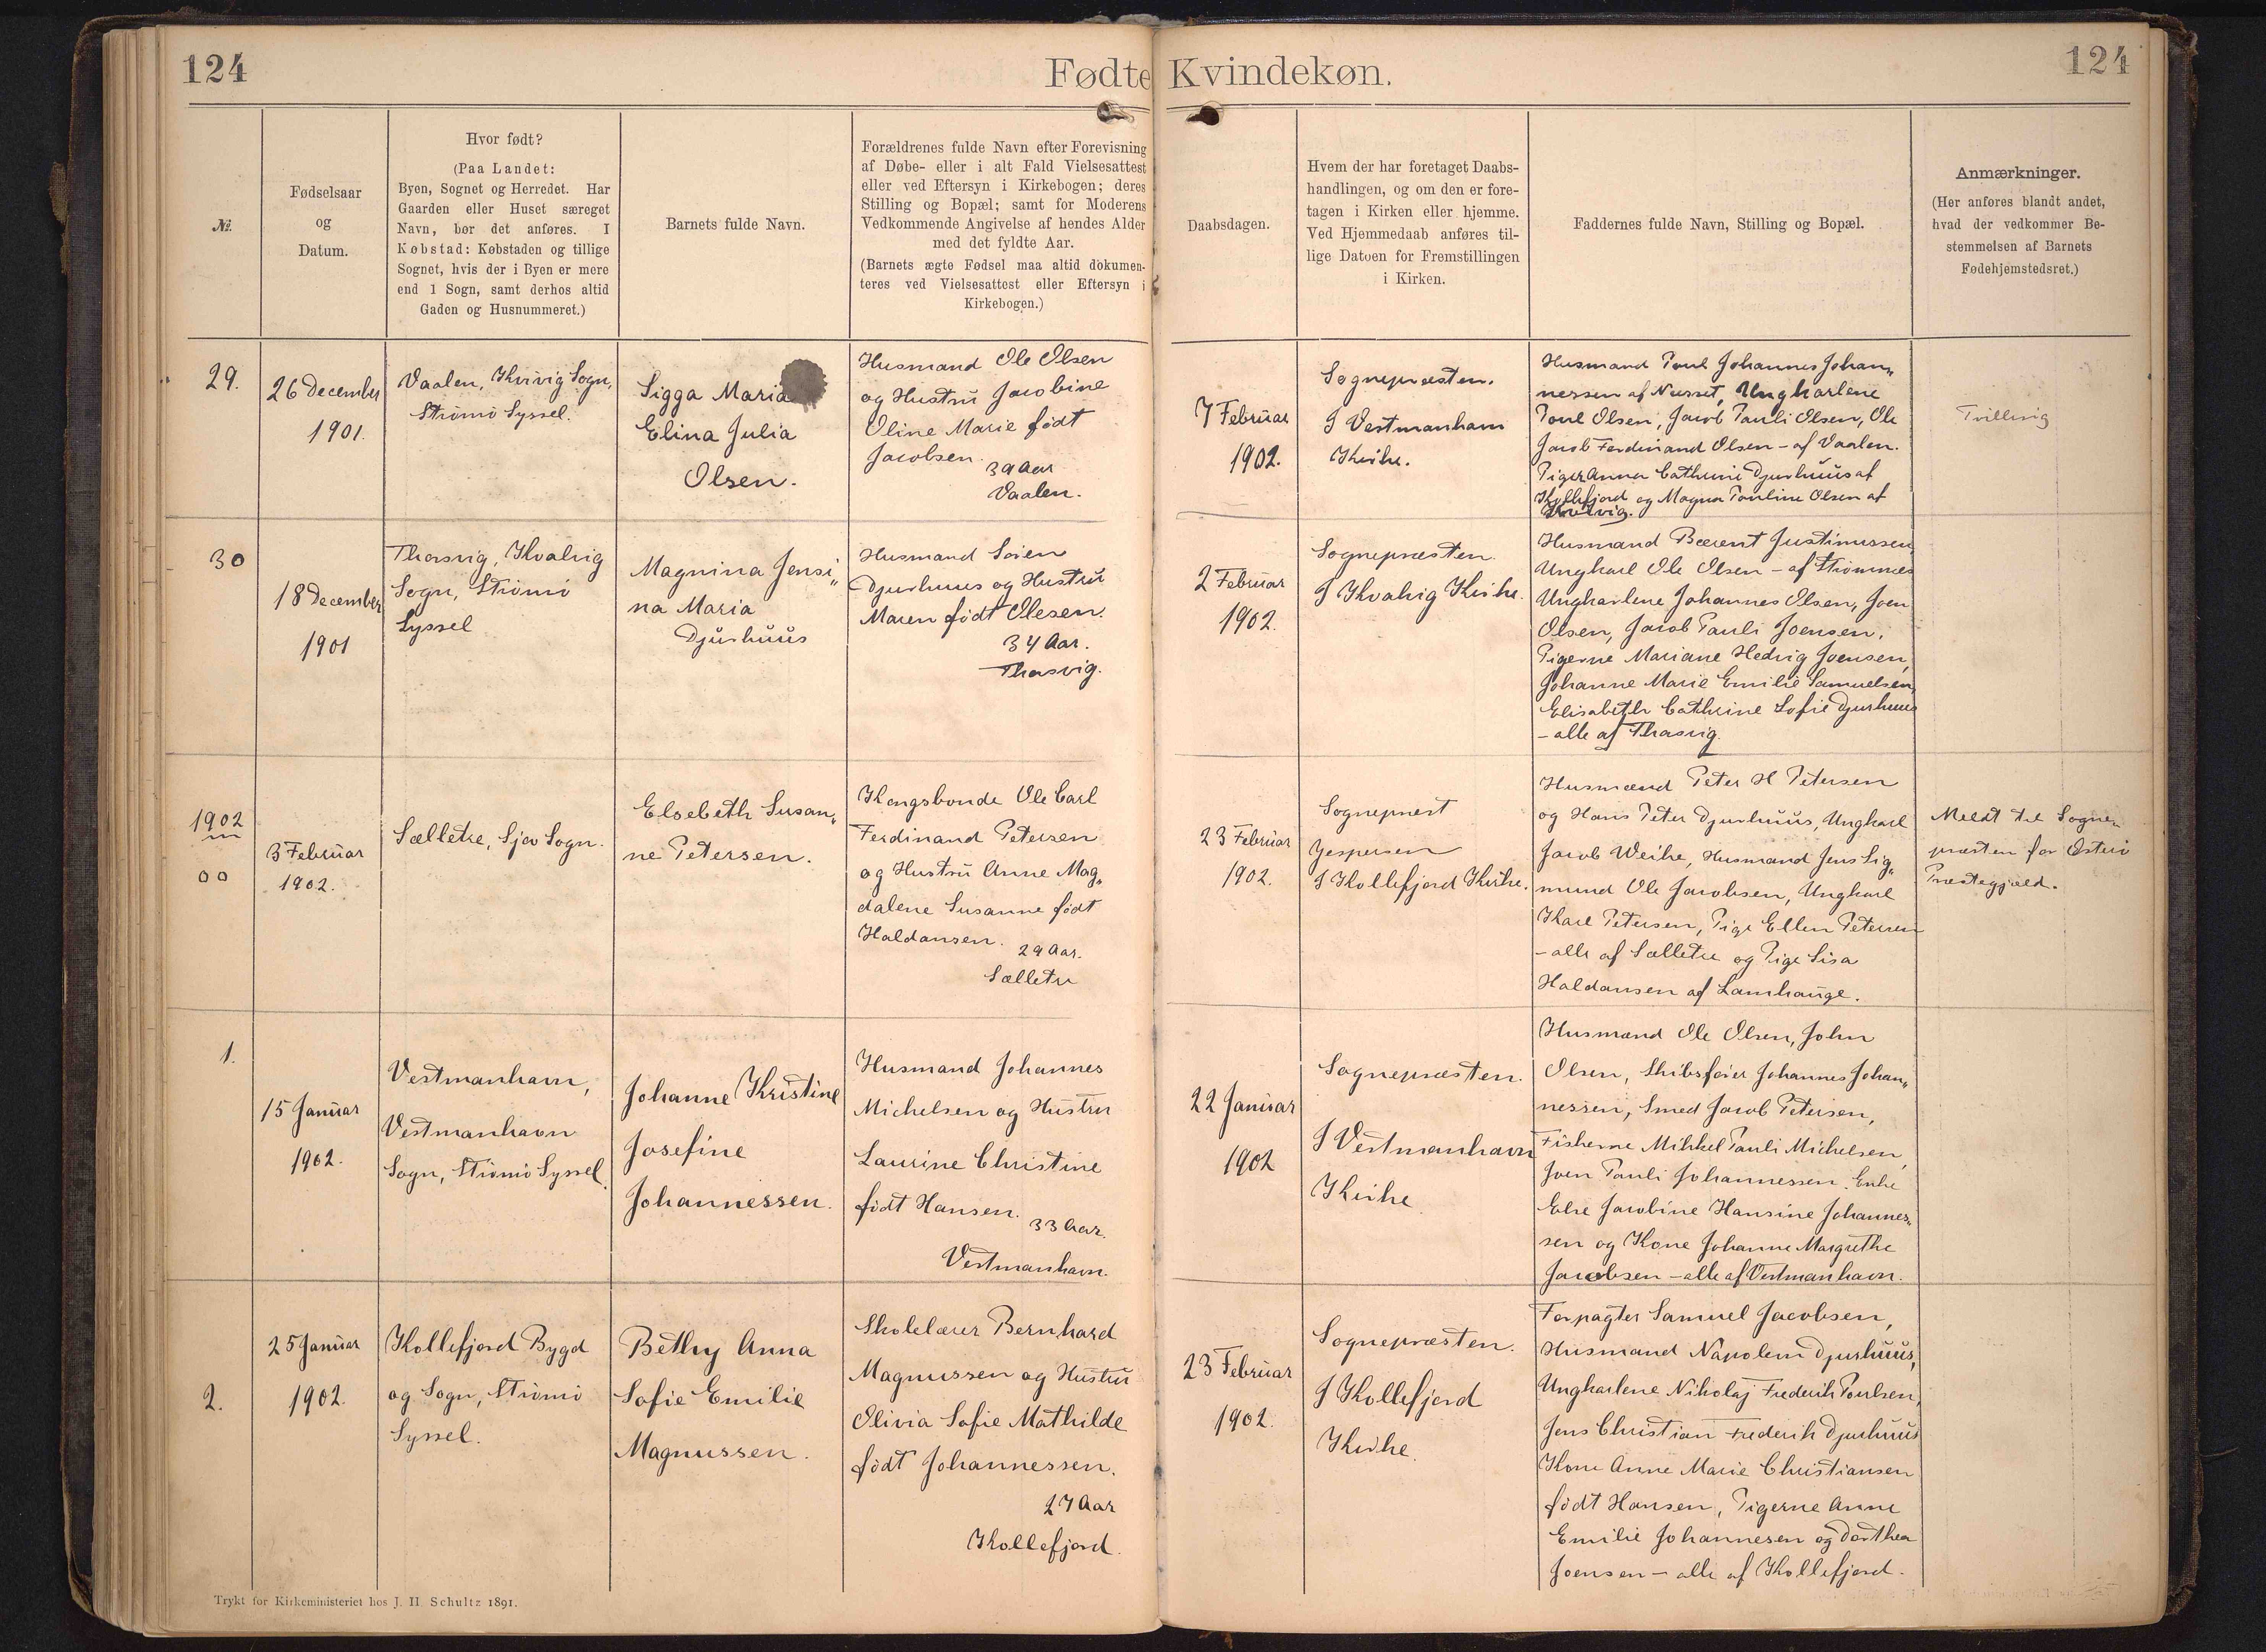 124
Fødte Kvindekøn.
124
№.
Fødselsaar
og
Datum.
Hvor født?
(Paa Landet:
Byen, Sognet og Herredet. Har
Gaarden eller Huset særeget
Navn, bør det anføres. I
Købstad: Købstaden og tillige
Sognet, hvis der i Byen er mere
end 1 Sogn, samt derhos altid
Gaden og Husnummeret.)
Barnets fulde Navn.
Forældrenes fulde Navn efter Forevisning
af Døbe- eller i alt Fald Vielsesattest
eller ved Eftersyn i Kirkebogen; deres
Stilling og Bopæl; samt for Moderens
Vedkommende Angivelse af hendes Alder
med det fyldte Aar.
(Barnets ægte Fødsel maa altid dokumen-
teres ved Vielsesattest eller Eftersyn i
Kirkebogen.)
Daabsdagen.
Hvem der har foretaget Daabs-
handlingen, og om den er fore-
tagen i Kirken eller hjemme.
Ved Hjemmedaab anføres til-
lige Datoen for Fremstillingen
i Kirken.
Faddernes fulde Navn, Stilling og Bopæl.
Anmærkninger.
(Her anføres blandt andet,
hvad der vedkommer Be-
stemmelsen af Barnets
Fødehjemstedsret.)
29.
26 December
1901.
Vaalen, Kvivig Sogn,
Strömö Syssel.
Sigga Maria
Elina Julia
Olsen.
Husmand Ole Olsen
og Hustrü Jacobine
Oline Marie født
Jacobsen.
39 Aar
Vaalen.
7 Februar
1902.
Sognepræsten.
I Vestmanhavn
Kirke.
Husmand Poul Johannes Johan„
nessen af Nesset, Ungkarlene
Poul Olsen, Jacob Pauli Olsen, Ole
Jacob Ferdinand Olsen – af Vaalen.
Piger Anna Cathrine Djurhuus af
Kollefjord og Magna Pauline Olsen af
Kvivig.
Tvilling
30
18 December
1901
Thorsvig, Kvalvig
Sogn, Strömö
Syssel
Magnina Jensi„
na Maria
Djurhuus
Husmand Soien
Djurhuus og Hustrü
Maren født Olesen.
34 Aar.
Thorsvig.
2 Februar
1902.
Sognepræsten.
I Kvalvig Kirke.
Husmand Berent Justinussen
Ungkarl Ole Olsen – af Strömnes
Ungkarlene Johannes Olsen, Joen
Olsen, Jacob Pauli Joensen.
Pigerne Mariane Hedvig Joensen,
Johanne Marie Emilie Samuelsen,
Elisabeth Cathrine Sofie Djurhuus
– alle af Thorsvig.
1902
00
3 Februar
1902.
Sælletre, Sjov Sogn.
Elsebeth Susan„
ne Petersen.
Kongsbonde Ole Carl
Ferdinand Petersen
og Hustrü Anne Mag„
dalene Susanne født
Haldansen.
29 Aar.
Sælletre
23 Februar
1902.
Sognepræst
Jespersen
I Kollefjord Kirke.
Husmænd Peter H Petersen
og Hans Peter Djurhuus, Ungkarl
Jacob Weihe, Husmand Jens Sig„
mund Ole Jacobsen, Ungkarl
Karl Petersen, Pige Ellen Petersen
– alle af Sælletre og Pige Lisa
Haldansen af Lamhauge.
Meldt til Sogne„
præsten for Österö
Præstegjæld.
1.
15 Januar
1902.
Vestmanhavn,
Vestmanhavn
Sogn, Strömö Syssel.
Johanne Kristine
Josefine
Johannessen.
Husmand Johannes
Michelsen og Hustru
Laurine Christine
født Hansen.
33 Aar.
Vestmanhavn.
22 Januar
1902
Sognepræsten.
I Vestmanhavn
Kirke
Husmænd Ole Olsen, John
Olsen, Skibsfører Johannes Johan„
nessen, Smed Jacob Petersen,
Fiskerne Mikkel Pauli Michelsen,
Joen Pauli Johannessen. Enke
Else Jacobine Hansine Johannes„
sen og Kone Johanne Margrethe
Jacobsen – alle af Vestmanhavn.
2.
25 Januar
1902.
Kollefjord Bygd
og Sogn, Strömö
Syssel.
Bethy Anna
Sofie Emilie
Magnussen.
Skolelærer Bernhard
Magnussen og Hustrü
Olivia Sofie Mathilde
født Johannessen.
27 Aar
Kollefjord.
23 Februar
1902.
Sognepræsten.
I Kollefjord
Kirke.
Forpagter Samuel Jacobsen,
Husmand Napoleon Djurhuus,
Ungkarlene Nikolaj Frederik Poulsen,
Jens Christian Frederik Djurhuus
Kone Anne Marie Christiansen
født Hansen, Pigerne Anne
Emilie Johannesen og Dorthea
Joensen – alle af Kollefjord.
Trykt for Kirkeministeriet hos J. H. Schultz 1891.